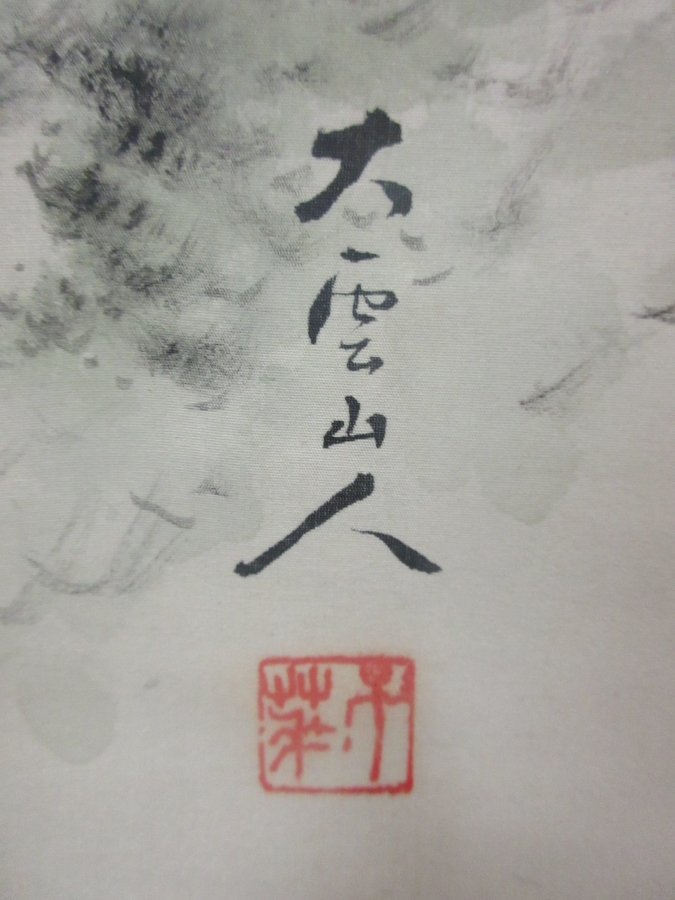 大雲山人